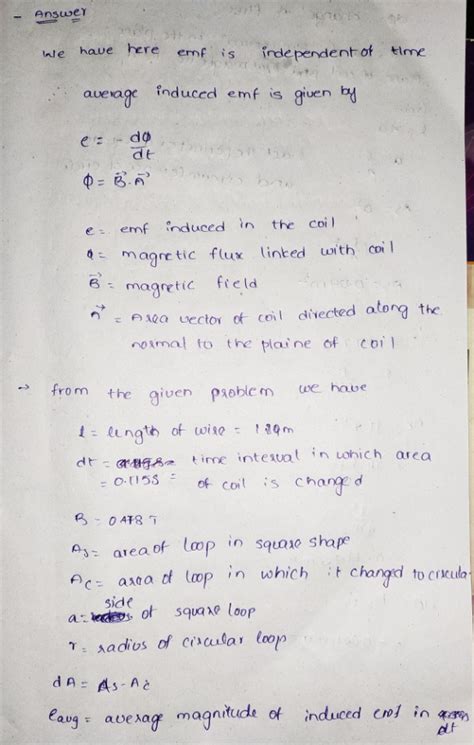 - Answer
We have here emf is independent of time
∴ average induced emf is given by
e = - dϕ/dt
ϕ = B⃗ . A⃗
e = emf induced in the coil
ϕ = magnetic flux linked with coil
B⃗ = magnetic field
A⃗ = Area vector of coil directed along the
normal to the plaine of coil
→ from the given problem we have
l = length of wire = 1.29m
dt = time interval in which area
= 0.115s = of coil is changed
B = 0.478 T
As = area of loop in square shape
Ac = area of loop in which it changed to circular
a = side of square loop
r = radios of circular loop
dA = As - Ac
eavg = average magnitude of induced emf in dt